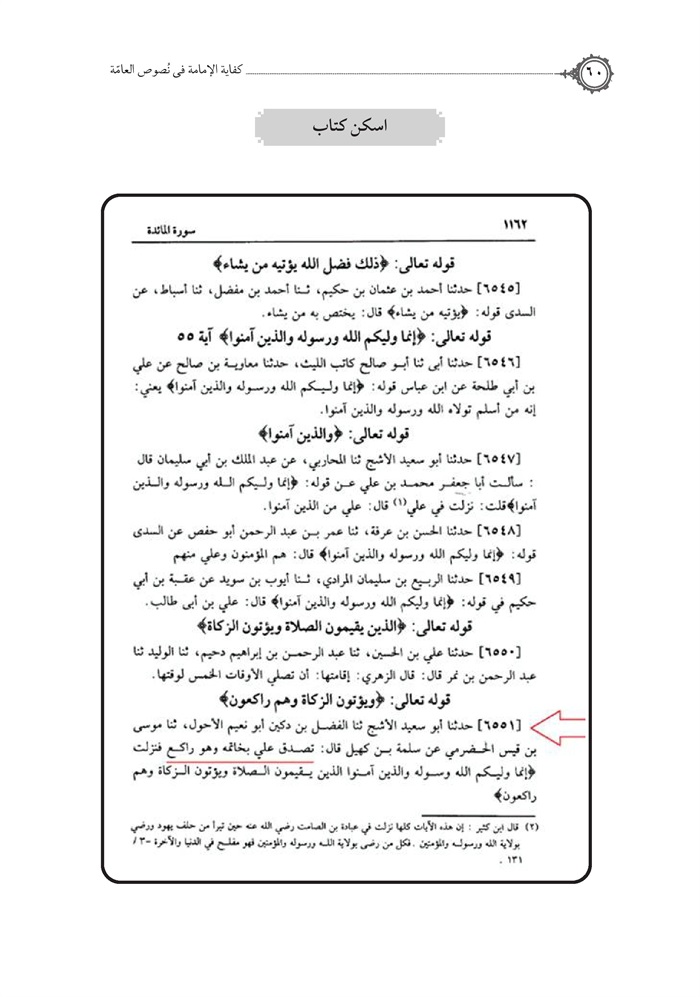 ٦٠
كفاية الإمامة في نُصوص العامّة
اسکن کتاب
١١٦٢
سورة المائدة
قوله تعالى: ﴿ذلك فضل الله يؤتيه من يشاء﴾
[٦٥٤٥] حدثنا أحمد بن عثمان بن حكيم، ثنا أحمد بن مفضل، ثنا أسباط، عن
السدى قوله: ﴿يؤتيه من يشاء﴾ قال: يختص به من يشاء.
قوله تعالى: ﴿إنما وليكم الله ورسوله والذين آمنوا﴾ آية ٥٥
[٦٥٤٦] حدثنا أبى ثنا أبو صالح كاتب الليث، حدثنا معاوية بن صالح عن علي
بن أبي طلحة عن ابن عباس قوله: ﴿إنما وليكم الله ورسوله والذين آمنوا﴾ يعني:
إنه من أسلم تولاه الله ورسوله والذين آمنوا.
قوله تعالى: ﴿والذين آمنوا﴾
[٦٥٤٧] حدثنا أبو سعيد الأشج ثنا المحاربي، عن عبد الملك بن أبي سليمان قال
: سألت أبا جعفر محمد بن علي عن قوله: ﴿إنما وليكم الله ورسوله والذين
آمنوا﴾قلت: نزلت في علي(١) قال: علي من الذين آمنوا.
[٦٥٤٨] حدثنا الحسن بن عرفة، ثنا عمر بن عبد الرحمن أبو حفص عن السدى
قوله: ﴿إنما وليكم الله ورسوله والذين آمنوا﴾ قال: هم المؤمنون وعلي منهم
[٦٥٤٩] حدثنا الربيع بن سليمان المرادي، ثنا أيوب بن سويد عن عقبة بن أبي
حكيم في قوله: ﴿إنما وليكم الله ورسوله والذين آمنوا﴾ قال: علي بن أبى طالب.
قوله تعالى: ﴿الذين يقيمون الصلاة ويؤتون الزكاة﴾
[٦٥٥٠] حدثنا علي بن الحسين، ثنا عبد الرحمن بن إبراهيم دحيم، ثنا الوليد ثنا
عبد الرحمن بن نمر قال: قال الزهري: إقامتها: أن تصلي الأوقات الخمس لوقتها.
قوله تعالى: ﴿ويؤتون الزكاة وهم راكعون﴾
[٦٥٥١] حدثنا أبو سعيد الأشج ثنا الفضل بن دكين أبو نعيم الأحول، ثنا موسى
بن قيس الحضرمي عن سلمة بن كهيل قال: تصدق علي بخاتمه وهو راكع فنزلت
﴿إنما وليكم الله وسوله والذين آمنوا الذين يقيمون الصلاة ويؤتون الزكاة وهم
راكعون﴾
(٢) قال ابن كثير : إن هذه الأيات كلها نزلت في عبادة بن الصامت رضي الله عنه حين تبرأ من حلف يهود ورضي
بولاية الله ورسوله والمؤمنين . فكل من رضى بولاية الله ورسوله والمؤمنين فهو مفلح في الدنيا والآخرة -٣ /
١٣١ .